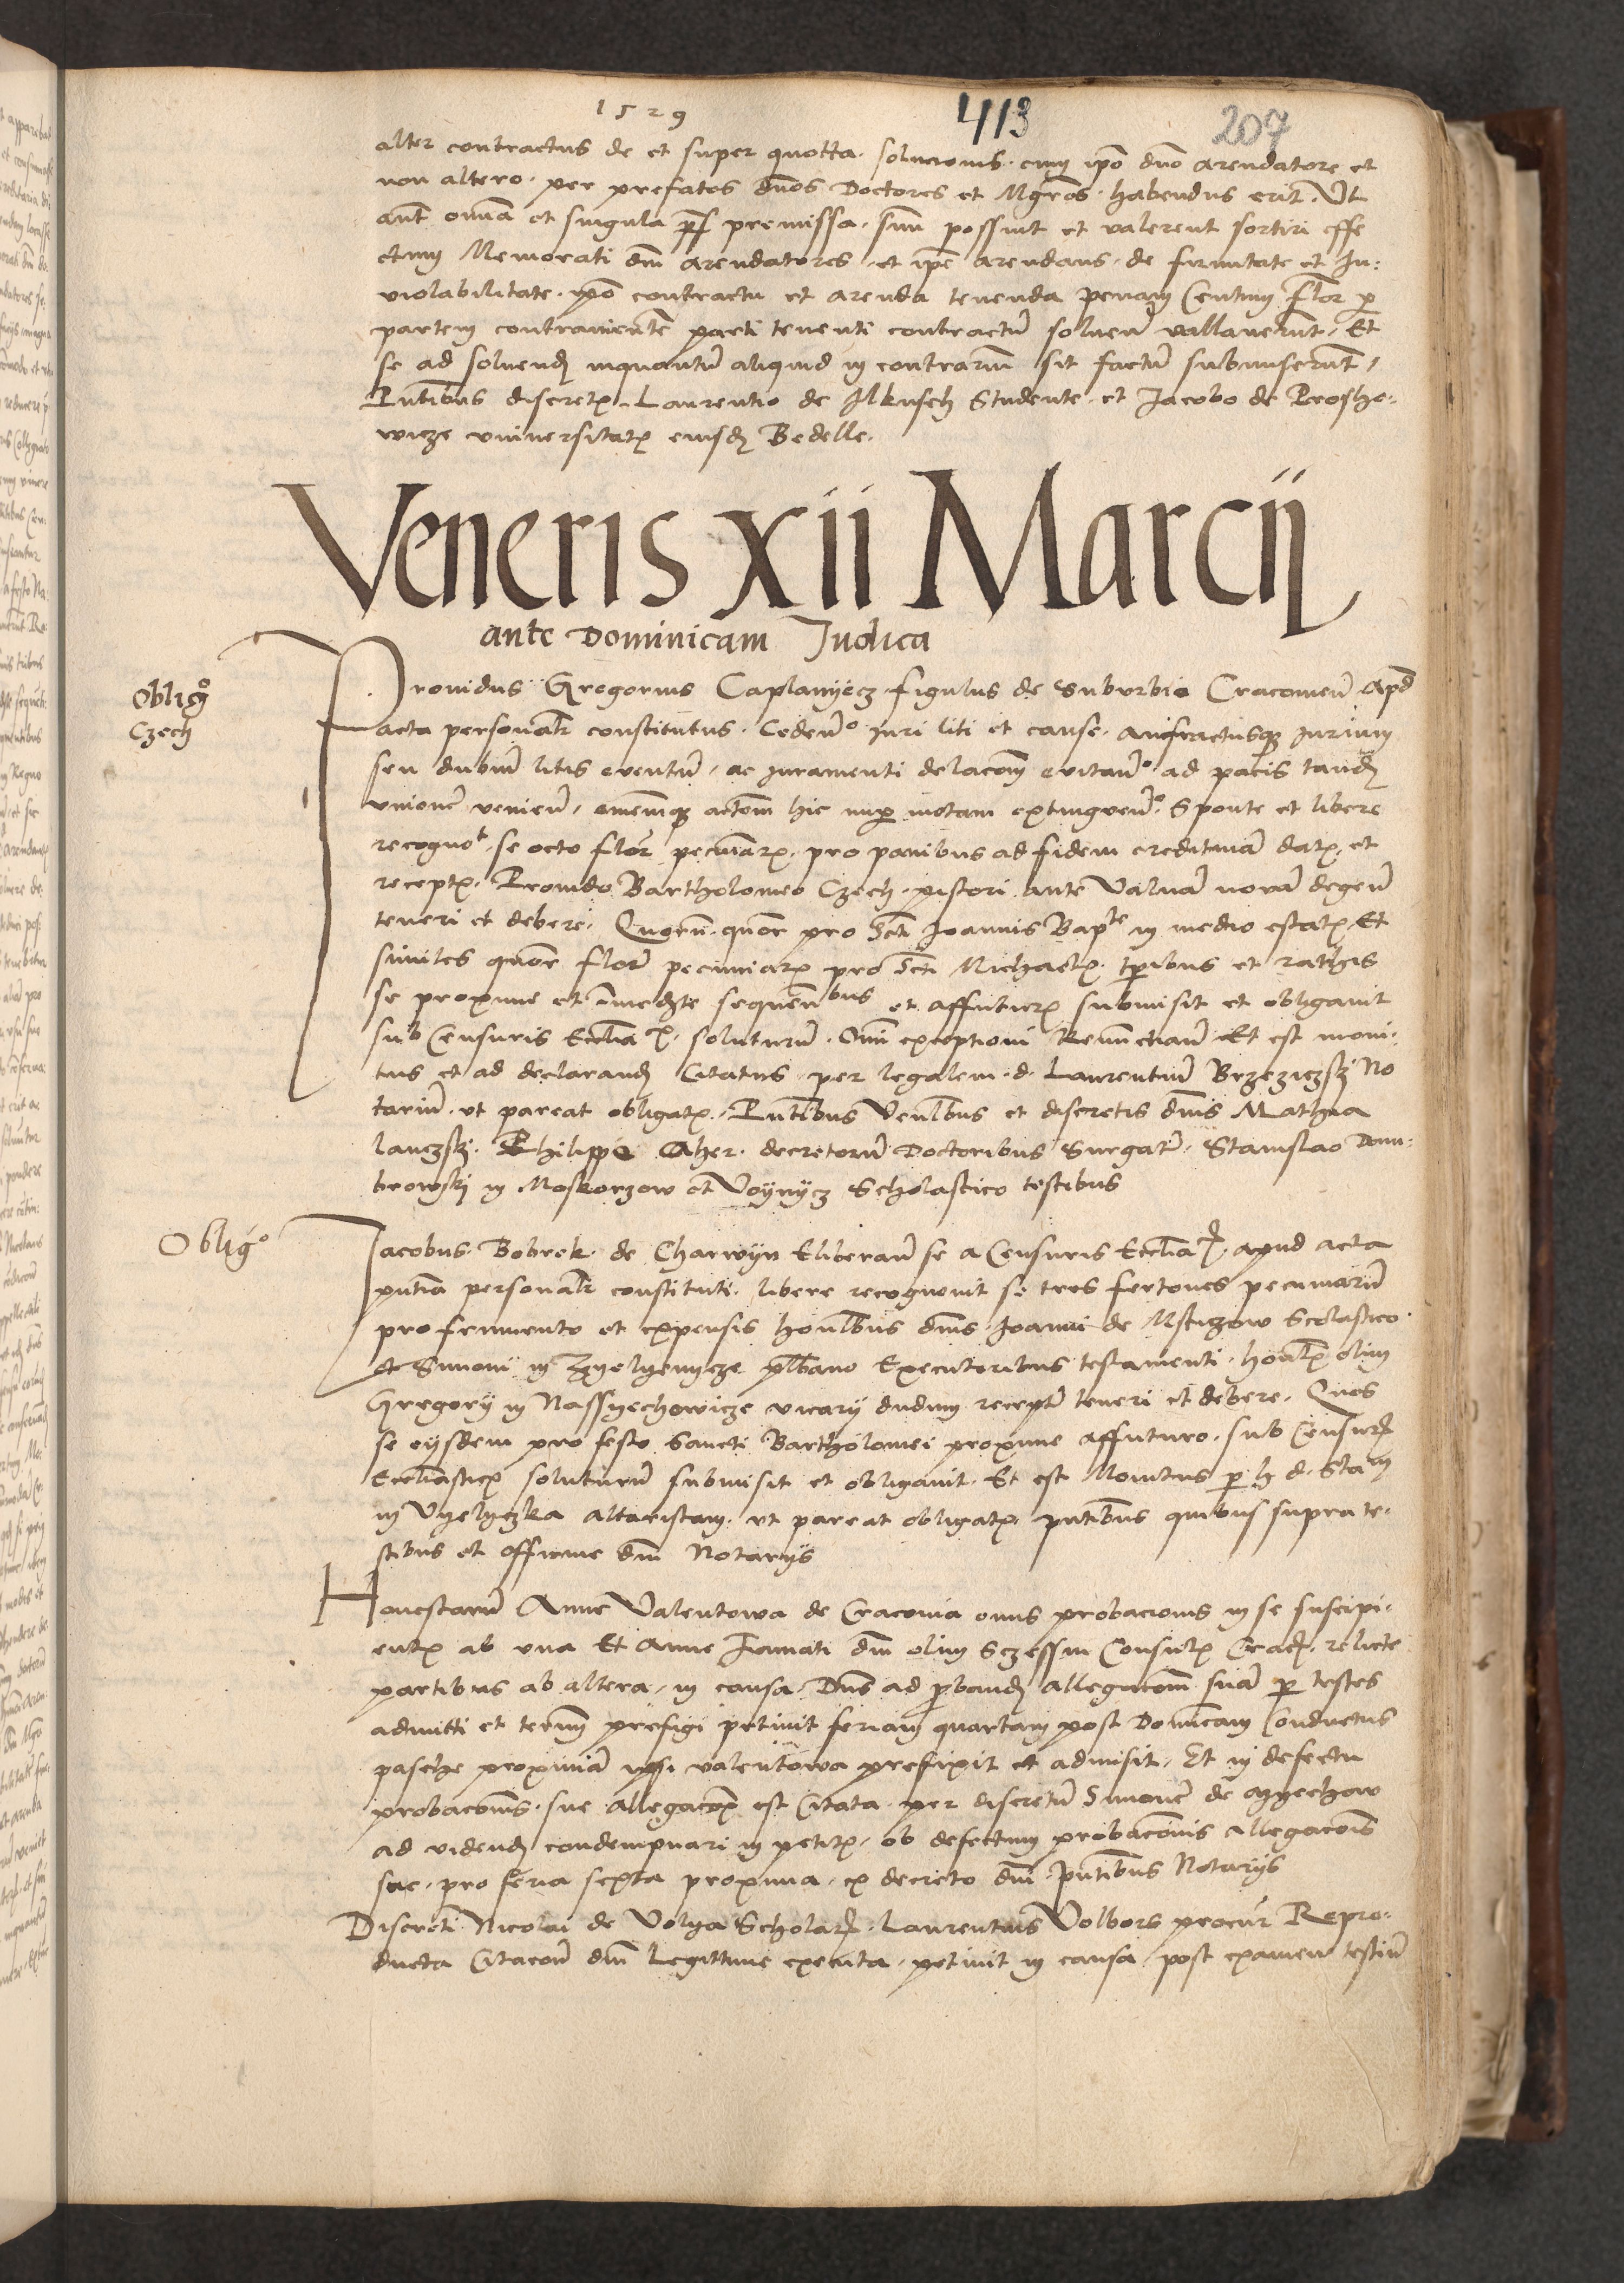 1529 413 207
alter contractus de et super quotta solucionis cum ipo dno arendatore et
non altero per prefatos dnos Doctores et Mgros habendus erit Ut
aut omnia et singula premissa suum possint et valerent sortiri effe
ctum Memorati dni arendatores et ipe arendans de firmitate et In:
violabilitate ipo contractu et arenda tenenda penam Centum flor p
partem contravenientem parti tenenti contractu solven vallaverunt Et
se ad solvend inquantum aliquid in contrarium sit factum submiserunt
Pntibus discretis Laurentio de Ilkusch Studente et Jacobo de Prosho-
wicze universitatis eiusd Bedelle
Veneris xii Marcij
ante Dominicam Judica
Obligo
Czech
Providus Gregorius Caplanyecz figulus de Suburbio Cracovien Apd
acta personalr constitutus Ceden Juri liti et cause anfractusq Jurium
seu dubium litis eventum ac juramenti delacom evitan ad pacis tand
unionem venien omnemq actom hic nup motam extingven Sponte et libere
recognot se octo flor pecuniar pro panibus ad fidem creditiva datis et
receptis Provido Bartholomeo Czech pistori ante Valvam novam degen
teneri et debere Quorum quor pro Scti Joannis Bapte in medio estatis Et
similes quor flor pecuniar pro Scti Michaelis tpribus et rathis
se proxime et immedte sequentibus et affuturis submisit et obligavit
sub Censuris Ecclia soluturum Omni exceptioni Renunctian Et est moni-
tus et ad declarand Citatus per legalem d Laurentium Brzeziczski No
tarium ut pareat obligatis Pntibus Venlbus et discretis dnis Mathia
lanczski Philippo Aher decretorum Doctoribus Surgatr Stanislao Dom-
browski in Moskorzow et Voynycz Scholastico testibus
Obligo
Jacobus Bobrek de Charwyn Eliberan se a Censuris Ecclia apud acta
pntia personalr constituti libere recognovit se tres fertones pecuniarum
pro frumento et expensis honlbus dnis Joanni de Msticzow Scolastico
et Simoni in plbano Executoribus testamenti honlis olim
Gregorij in Nassyechowicze vicarij dudum receptis teneri et debere Quos
se eysdem pro festo Sancti Bartholomei proxime affuturo sub Censuris
Ecclasticis soluturum submisit et obligavit Et est Monitus p h d Sta
in Vyelyczka altaristam ut pareat obligatis pntibus quibus supra te-
stibus et officine dni Notarijs
Honestarum Anne Valentowa de Cracovia onus probacionis in se suscipi-
entis ab una Et Anne Famati dni olim Sczessni Consulis Crac relicte
partibus ab altera in causa Dns ad pband allegacom suam p testes
admitti et termin prefigi petivit feriam quartam post Domicam Conductus
pasche proximam ipsi valentowa prefixit et admisit Et in defectu
probaconis sue allegacois est Citata per discretum Simonem de Myechow
ad videnda condempnari in petitis ob defectum probaconis allegacois
sue pro feria sexta proxima ex decreto dni pntibus Notarijs
Discreti Nicolai de Volya Scholar Laurentius Volbors procur Repro-
ducta Citacom dni Legittime executa petivit in causa post examen testium